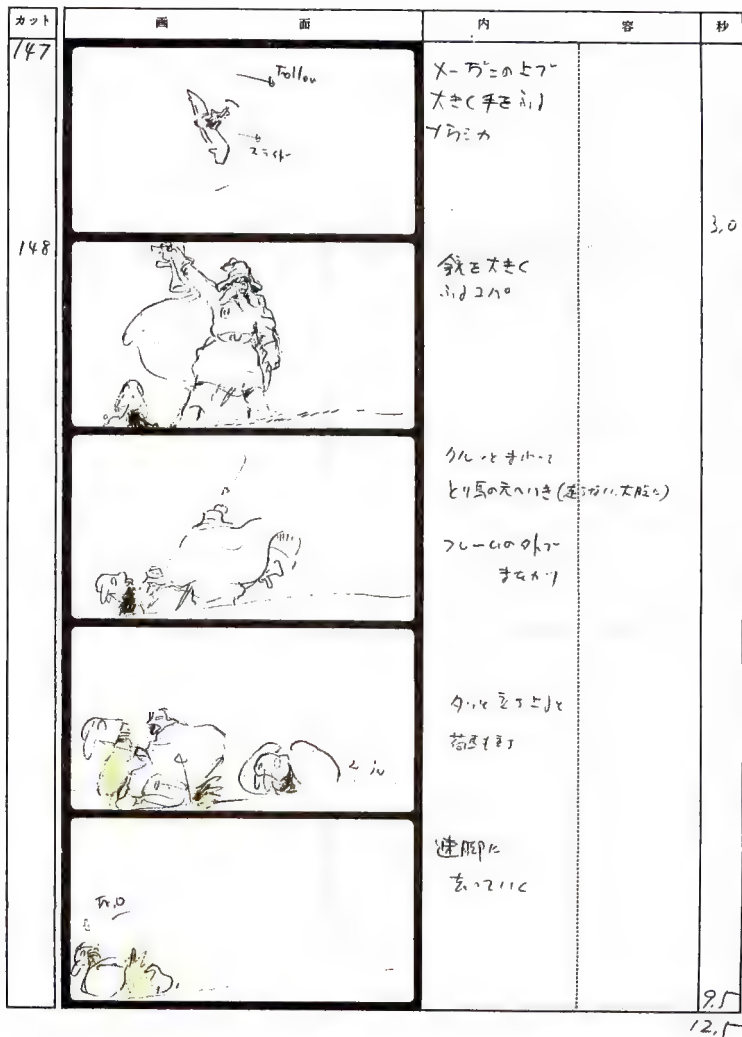 カット 画面 内容 秒
147
Follow
スライド
メーヴェの上で
大きく手をふる
ナウシカ
3,0
148
銃を大きく
ふるユパ
クルッとまわって
とり馬の元へいき(走らない、大股に)
フレームの外で
またがり
タッと立ち上ると
荷馬も立つ
in
速脚に
去っていく
Fr.O
9.5
12.5